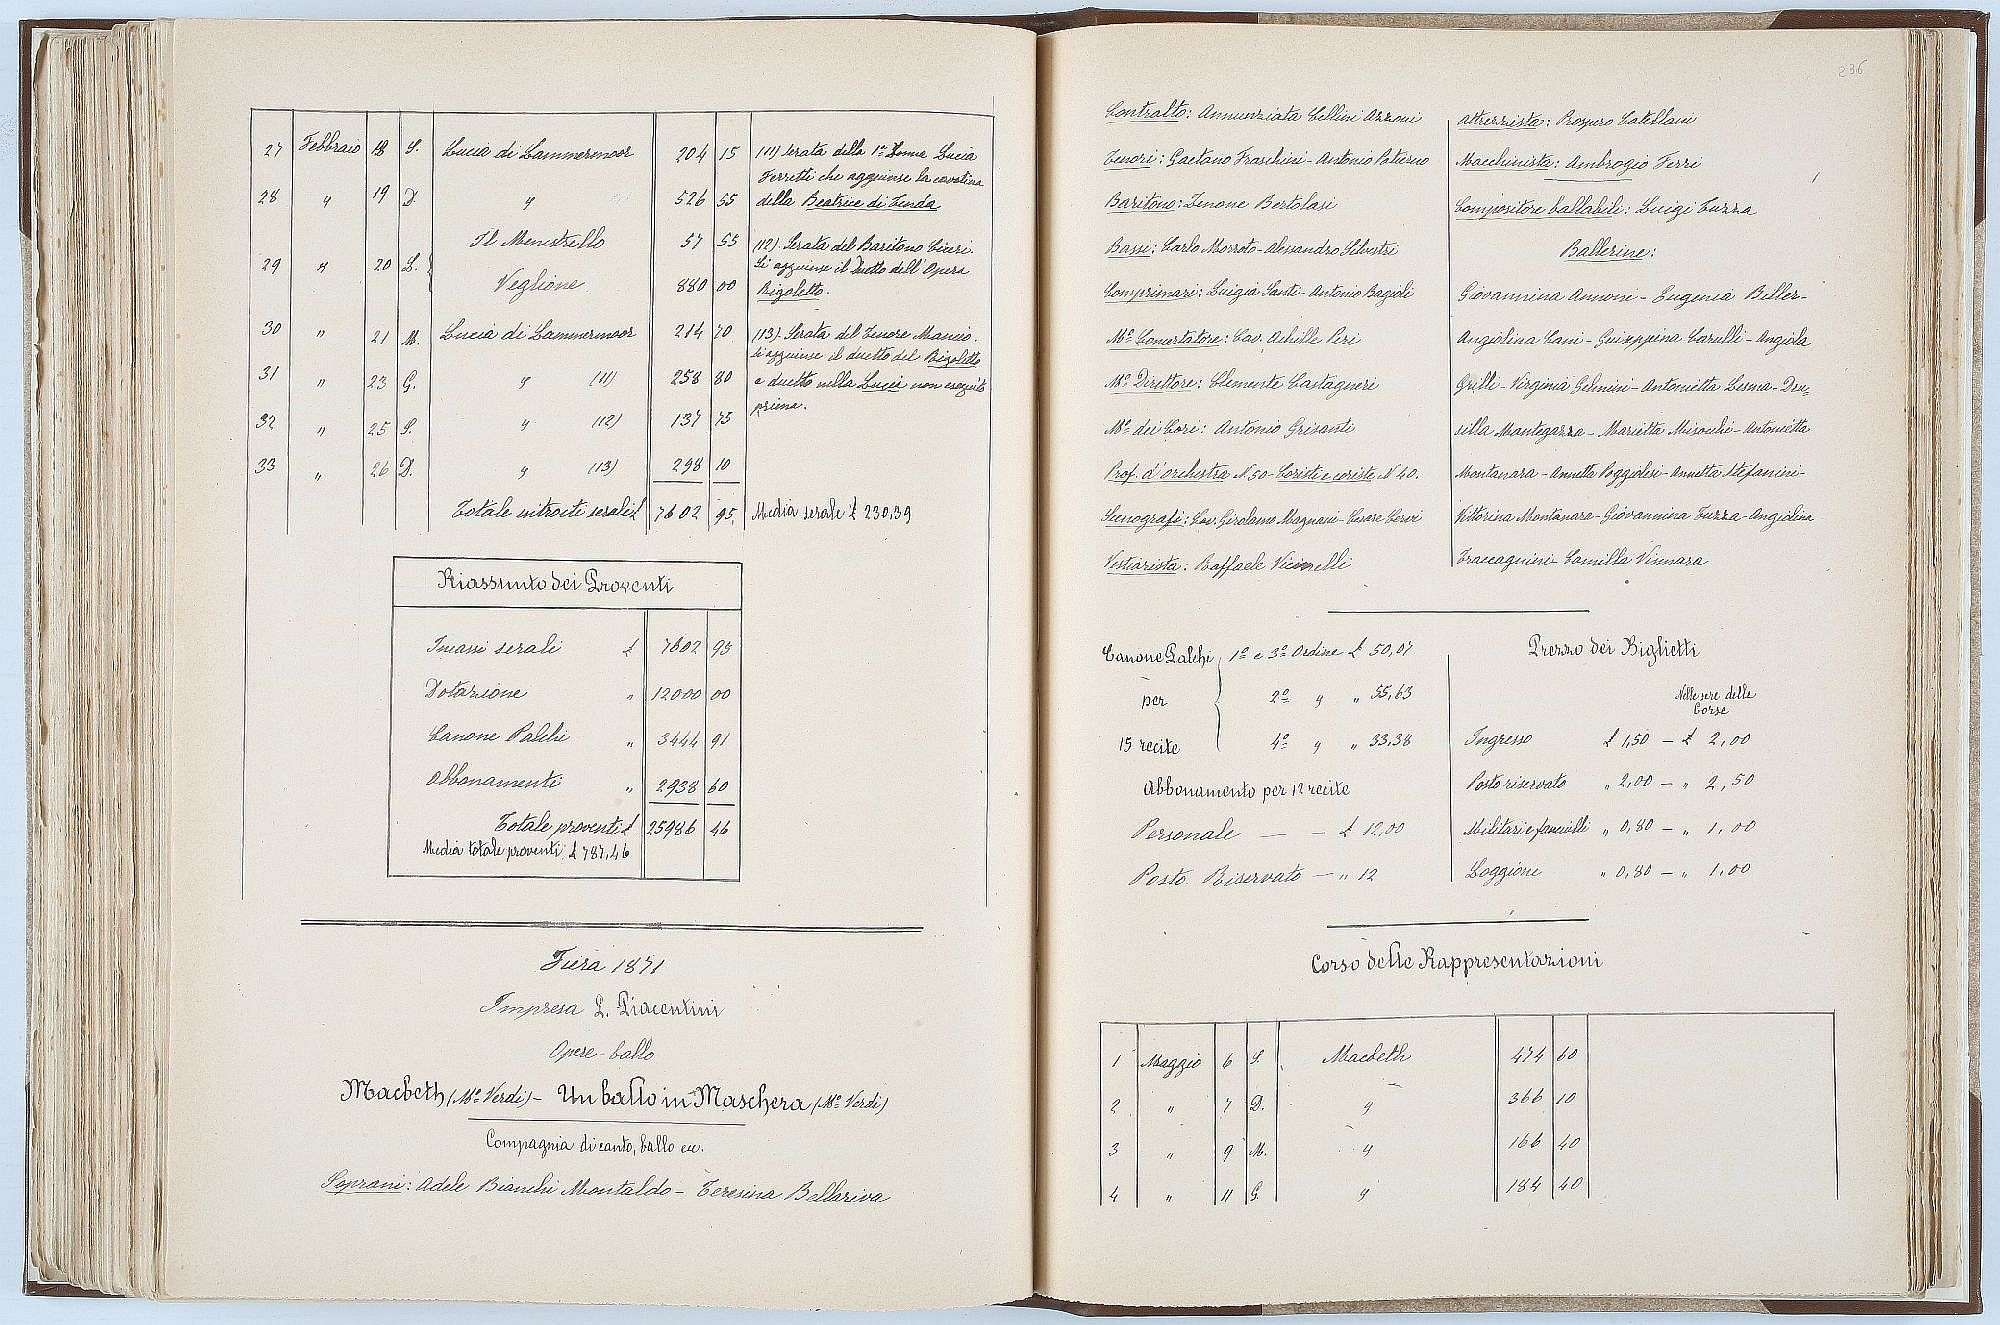 27 Febbraio 18 S. Lucia di Lammermoor 204 15
28 " 19 D. " 526 55
Il Menestrello 57 55
29 " 20 L.
Veglione 880 00
30 " 21 M. Lucia di Lammermoor 214 70
31 " 23 G. " (11) 258 80
32 " 25 S. " (12) 137 75
33 " 26 D. " (13) 298 10
Totale introiti serali £ 7602 95. Media serale £ 230,39
(11) Serata della 1ª Donna Lucia
Ferretti che aggiunse la cavatina
della Beatrice di Tenda
(12). Serata del Baritono
Si aggiunse il Duetto dell'Opera
Rigoletto.
(13). Serata del Tenore Mancio.
Si aggiunse il duetto del Rigoletto
e duetto nella Lucia non eseguito
prima.
Riassunto dei Proventi
Incassi serali £ 7602 95
Dotazione " 12000 00
Canone Palchi " 3444 91
Abbonamenti " 2938 60
Totale proventi £ 25986 46
Media totale proventi £ 787,46
Fiera 1871
Impresa P. Piacentini
Opere-ballo
Macbeth (Mº Verdi) - Un ballo in Maschera (Mº Verdi)
Compagnia di canto, ballo ecc.
Soprani: Adele Bianchi Montaldo - Teresina Bellariva
236
Contralto: Annunziata Cellini Azzoni
Tenori: Gaetano Fraschini - Antonio Patierno
Baritono: Zenone Bertolasi
Bassi: Carlo Morroto - Alessandro Silvestri
Comprimari: Luigia Santi - Antonio Bagioli
Mº Concertatore: Cav. Achille Peri
Mº Direttore: Clemente Castagneri
Mº dei Cori: Antonio Grisanti
Prof. d'orchestra N. 50 - Coristi e coriste N. 40.
Scenografi: Cav. Girolamo Magnani - Cesare Cervi
Vestiarista: Raffaele Vicinelli
Attrezzista: Prospero Catellani
Macchinista: Ambrogio Ferri
Compositore ballabili: Luigi Tuzza
Ballerine:
Giovannina Annoni - Eugenia Biller-
Angiolina Cani - Guiseppina Carulli - Angiola
Grilli - Virginia Gelmini - Antonietta Lesma - Dru-
silla Mantegazza - Marietta Mirocchi - Antonietta
Montanara - Annetta Poggiolesi - Annetta Stefanini -
Vittorina Montanara - Giovannina Tuzza - Angiolina
Traccagnini - Camilla Vismara
Canone Palchi 1º e 3º Ordine £ 50,07
per 2º " " 55,63
15 recite 4º " " 33,38
Abbonamento per 12 recite
Personale — — £ 12,00
Posto Riservato — " 12
Prezzo dei Biglietti
Nelle sere delle
Corse
Ingresso £ 1,50 — £ 2,00
Posto riservato " 2,00 — " 2,50
Militari e fanciulli " 0,80 — " 1,00
Loggione " 0,80 — " 1,00
Corso delle Rappresentazioni
1 Maggio 6 S. Macbeth 474 60
2 " 7 D. " 366 10
3 " 9 M. " 166 40
4 " 11 G. " 184 40